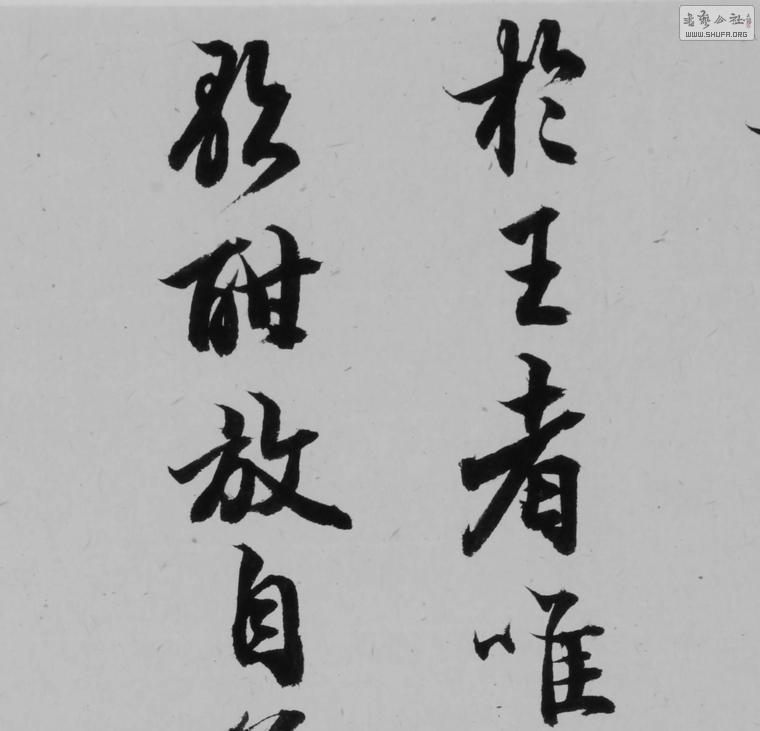 於王者唯
歌酣放自
书艺公社
WWW.SHUFA.ORG